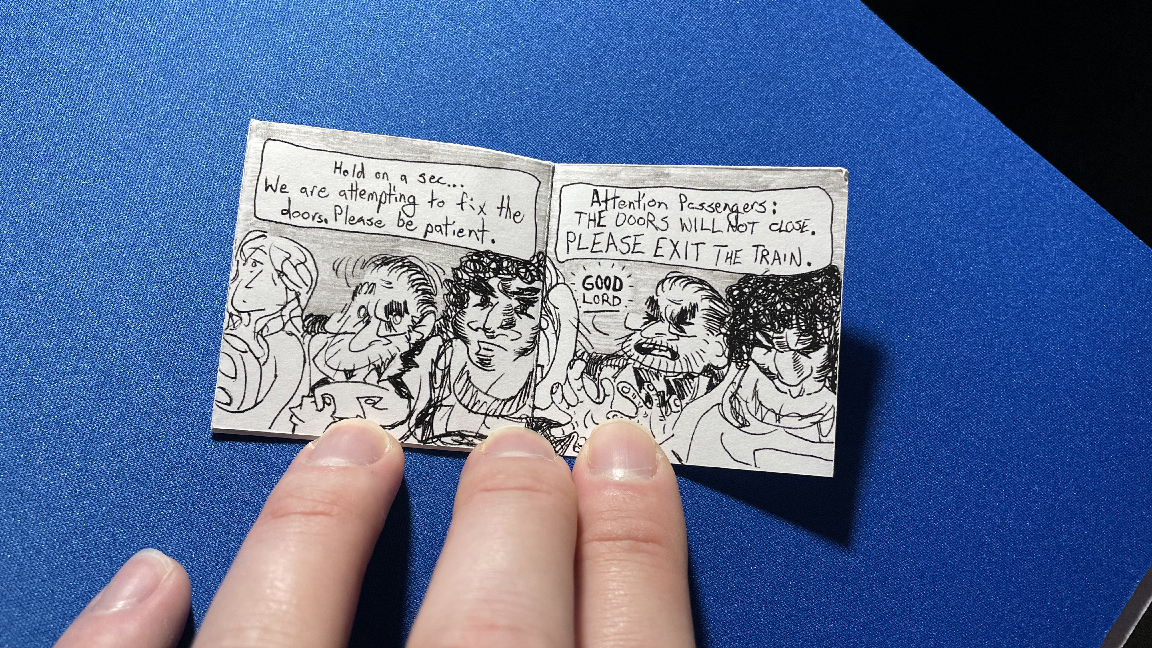 Hold on a sec...
We are attempting to fix the
doors. Please be patient.
Attention Passengers:
THE DOORS WILL NOT CLOSE.
PLEASE EXIT THE TRAIN.
GOOD
LORD